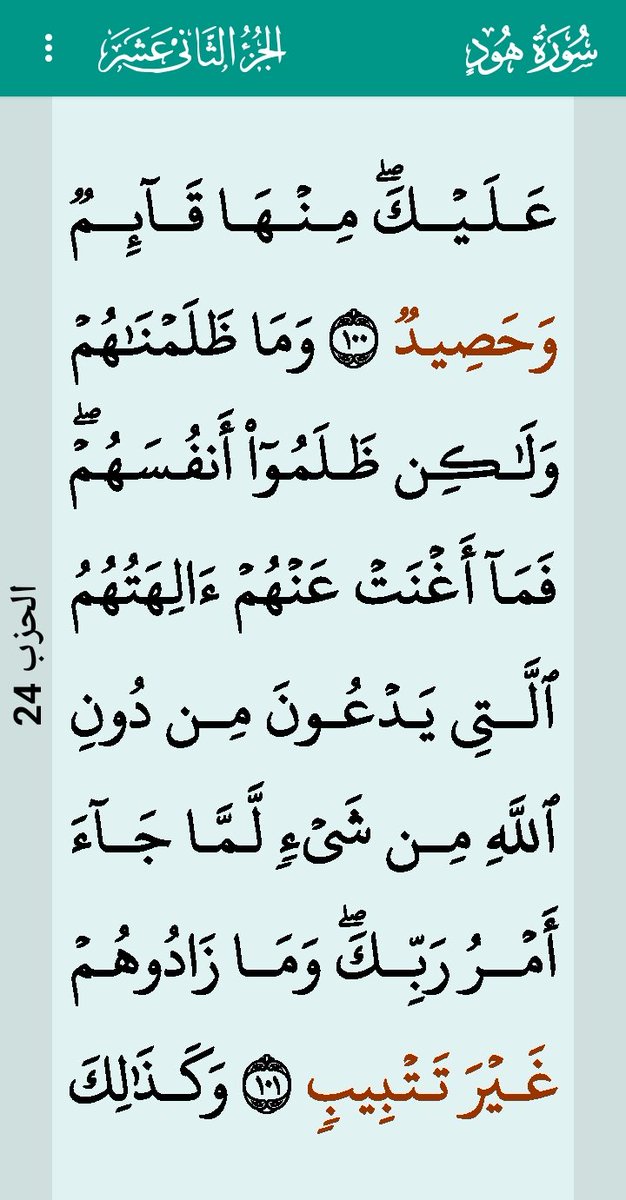 سُورَةُ هُودٍ
الجُزْءُ الثَّانِي عَشَرَ
عَلَيۡكَۖ مِنۡهَا قَآئِمٞ
وَحَصِيدٞ ١٠٠ وَمَا ظَلَمۡنَٰهُمۡ
وَلَٰكِن ظَلَمُوٓاْ أَنفُسَهُمۡۖ
فَمَآ أَغۡنَتۡ عَنۡهُمۡ ءَالِهَتُهُمُ
ٱلَّتِي يَدۡعُونَ مِن دُونِ
ٱللَّهِ مِن شَيۡءٖ لَّمَّا جَآءَ
أَمۡرُ رَبِّكَۖ وَمَا زَادُوهُمۡ
غَيۡرَ تَتۡبِيبٖ ١٠١ وَكَذَٰلِكَ
الحزب 24